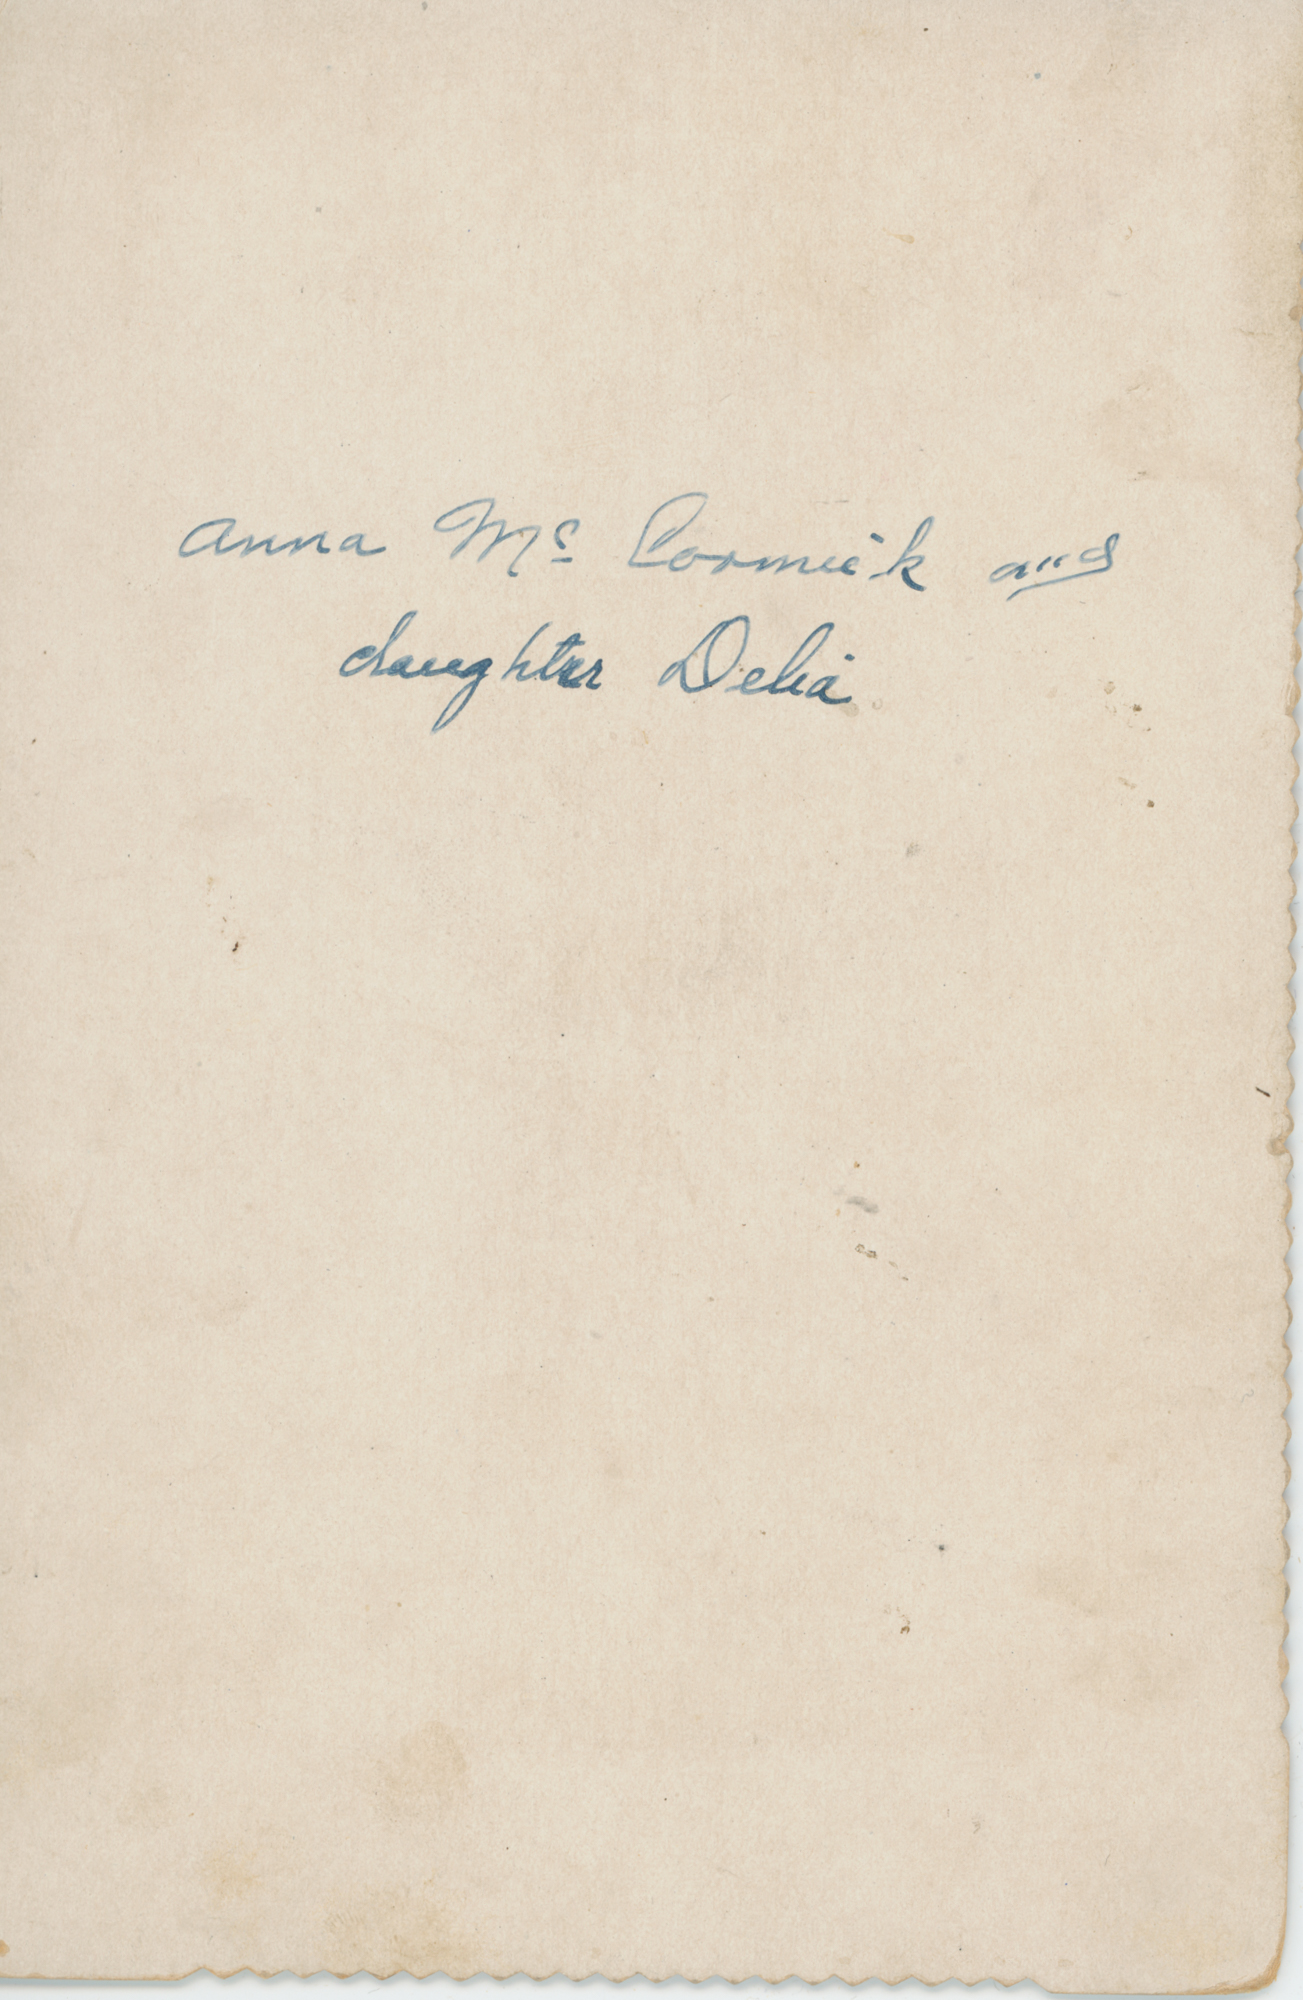 Anna Mc Cormick and
daughter Delia